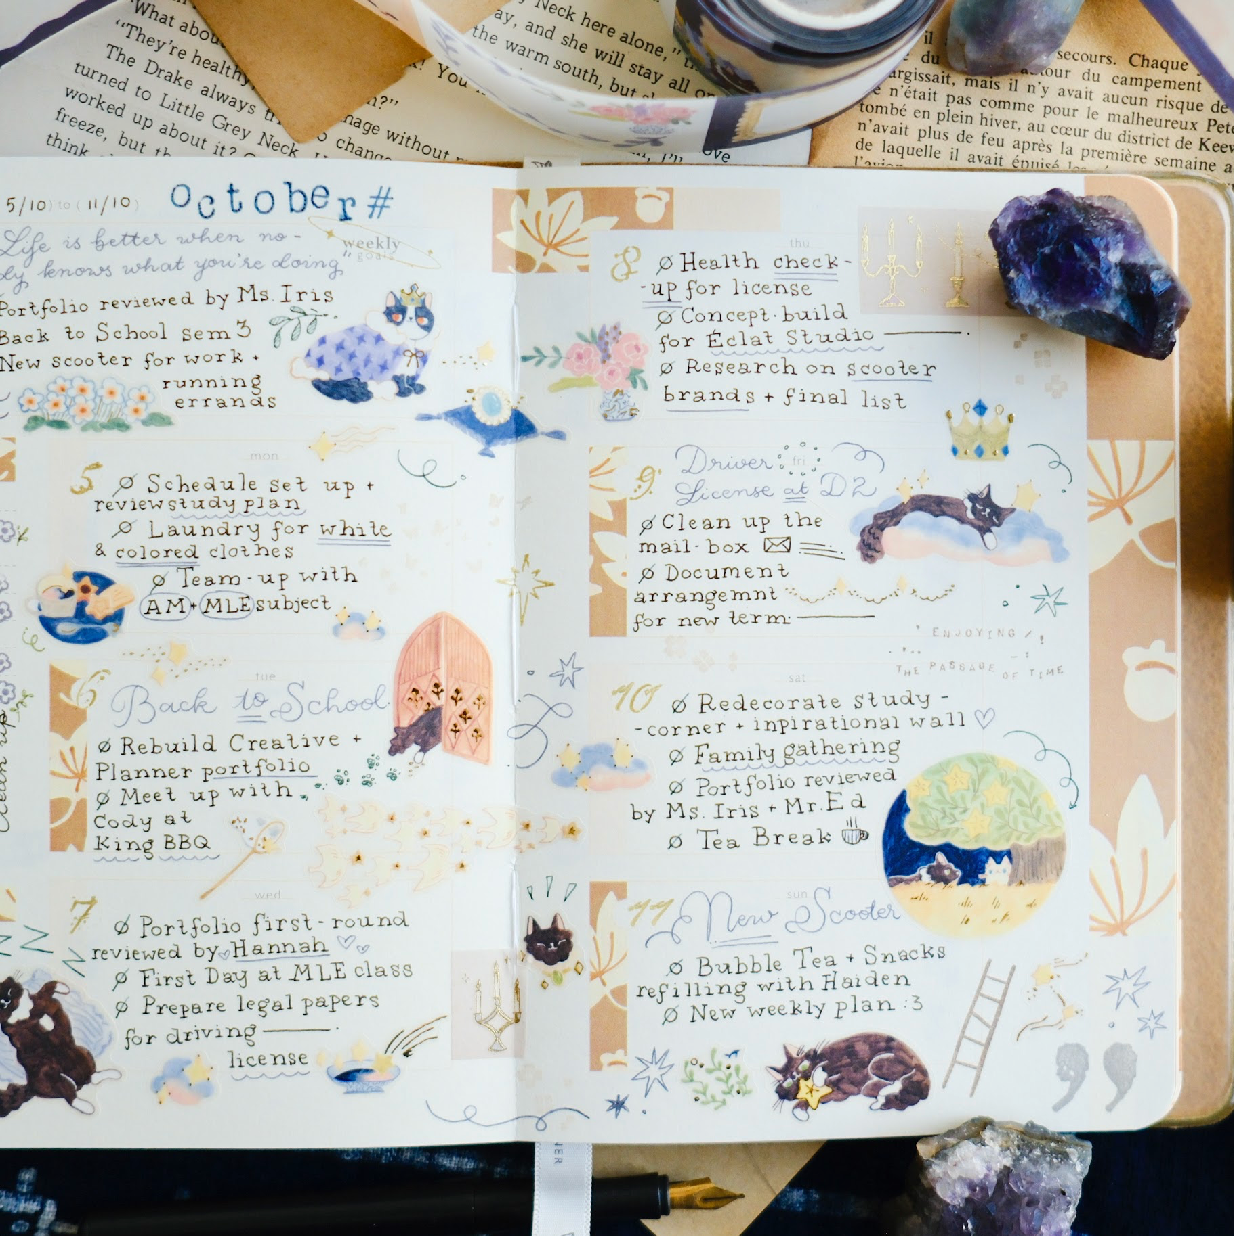 "What abou
"They're healthy
The Drake always
turned to Little Grey Neck.
worked up about it?
freeze, but th
think
n?"
nage without
o change
You
Neck here alone,"
ay, and she will stay all
the warm south, but
ove
il
du
secours. Chaque
tour du campement
rgissait, mais il n'y avait aucun risque de
n'était pas comme pour le malheureux Pete
tombé en plein hiver, au cœur du district de Keew
n'avait plus de feu après la première semaine a
de laquelle il avait épuisé
5/10 to 11/10
october#
Life is better when no-
dy knows what you're doing"
weekly
goals
Portfolio reviewed by Ms. Iris
Back to School sem 3
New scooter for work +
running
errands
mon
5
Ø Schedule set up +
review study plan
Ø Laundry for white
& colored clothes
Ø Team-up with
AM + MLE subject
tue
6
Back to School
Ø Rebuild Creative +
Planner portfolio
Ø Meet up with
Cody at
King BBQ
wed
7
Ø Portfolio first-round
reviewed by Hannah
Ø First Day at MLE class
Ø Prepare legal papers
for driving
license
thu
8
Ø Health check-
-up for license
Ø Concept build
for Éclat Studio
Ø Research on scooter
brands + final list
fri
9
Driver
License at D2
Ø Clean up the
mail-box
Ø Document
arrangemnt
for new term
"ENJOYING
THE PASSAGE OF TIME
sat
10
Ø Redecorate study-
-corner + inpirational wall
Ø Family gathering
Ø Portfolio reviewed
by Ms. Iris + Mr. Ed
Ø Tea Break
sun
11
New Scooter
Ø Bubble Tea + Snacks
refilling with Haiden
Ø New weekly plan :3
NER